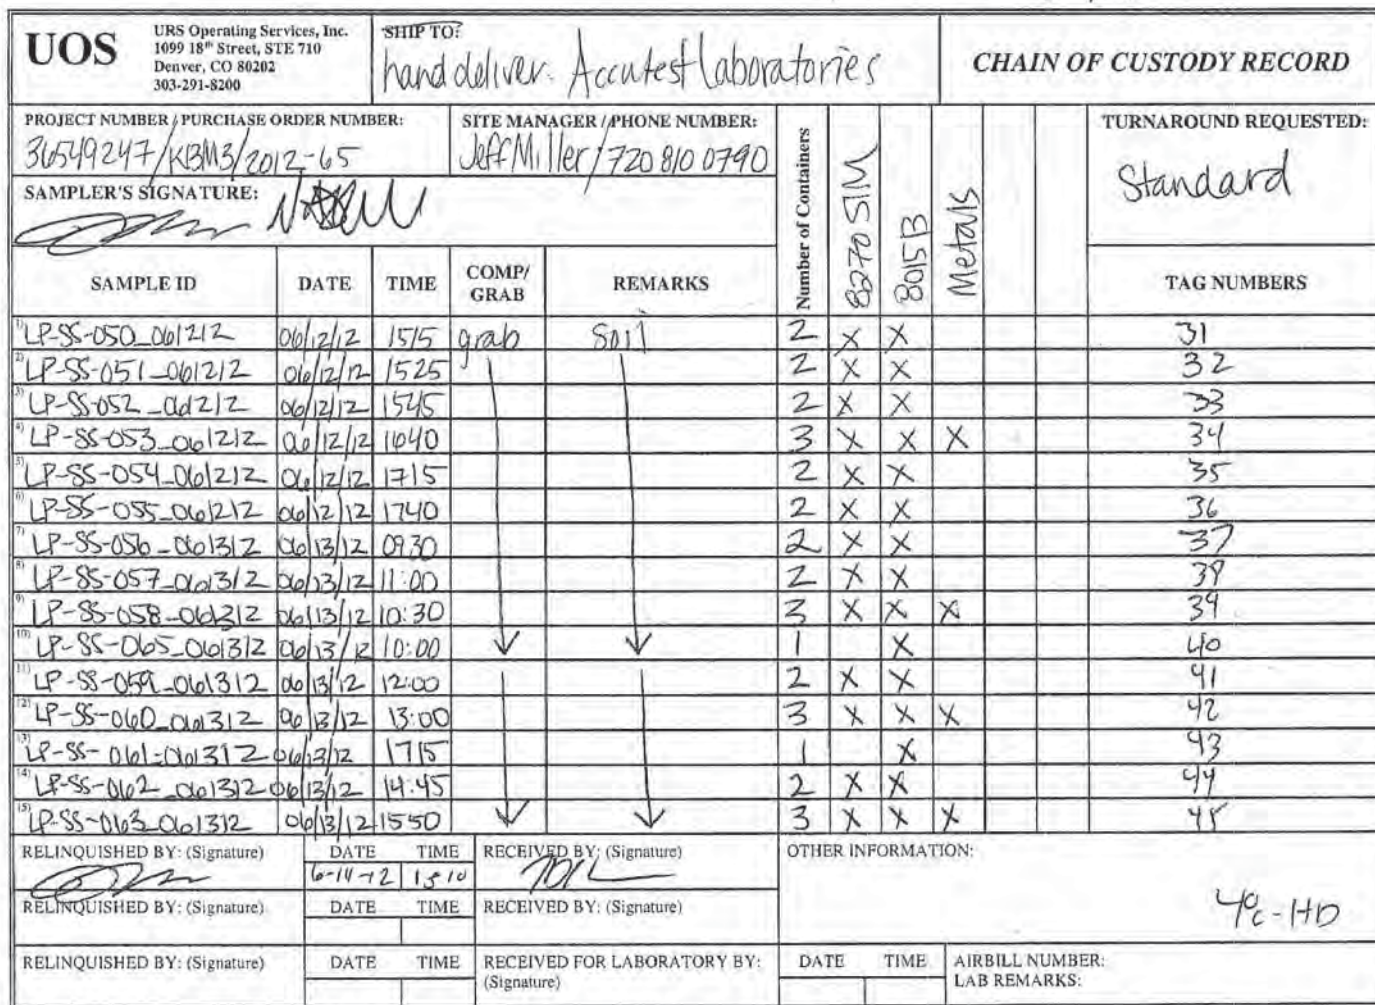 UOS
URS Operating Services, Inc.
1099 18th Street, STE 710
Denver, CO 80202
303-291-8200
SHIP TO:
hand deliver: Accutest Laboratories
CHAIN OF CUSTODY RECORD
PROJECT NUMBER / PURCHASE ORDER NUMBER:
36549247/KBM3/2012-65
SITE MANAGER / PHONE NUMBER:
Jeff Miller / 720 810 0790
SAMPLER'S SIGNATURE:
Number of Containers
8270 SIM
8015B
Metals
TURNAROUND REQUESTED:
Standard
SAMPLE ID DATE TIME COMP/ GRAB REMARKS TAG NUMBERS
1) LP-SS-050_061212 06/12/12 1515 grab Soil 2 X X 31
2) LP-SS-051_061212 06/12/12 1525 2 X X 32
3) LP-SS-052_061212 06/12/12 1545 2 X X 33
4) LP-SS-053_061212 06/12/12 1640 3 X X X 34
5) LP-SS-054_061212 06/12/12 1715 2 X X 35
6) LP-SS-055_061212 06/12/12 1740 2 X X 36
7) LP-SS-056_061312 06/13/12 0930 2 X X 37
8) LP-SS-057_061312 06/13/12 11:00 2 X X 38
9) LP-SS-058_061312 06/13/12 10:30 3 X X X 39
10) LP-SS-065_061312 06/13/12 10:00 1 X 40
11) LP-SS-059_061312 06/13/12 12:00 2 X X 41
12) LP-SS-060_061312 06/13/12 13:00 3 X X X 42
13) LP-SS-061_061312 06/13/12 1715 1 X 43
14) LP-SS-062_061312 06/13/12 14:45 2 X X 44
15) LP-SS-063_061312 06/13/12 1550 3 X X X 45
RELINQUISHED BY: (Signature) DATE TIME RECEIVED BY: (Signature) OTHER INFORMATION:
6-14-12 1510
4°C-HD
RELINQUISHED BY: (Signature) DATE TIME RECEIVED BY: (Signature)
RELINQUISHED BY: (Signature) DATE TIME RECEIVED FOR LABORATORY BY: (Signature) DATE TIME AIRBILL NUMBER:
LAB REMARKS: